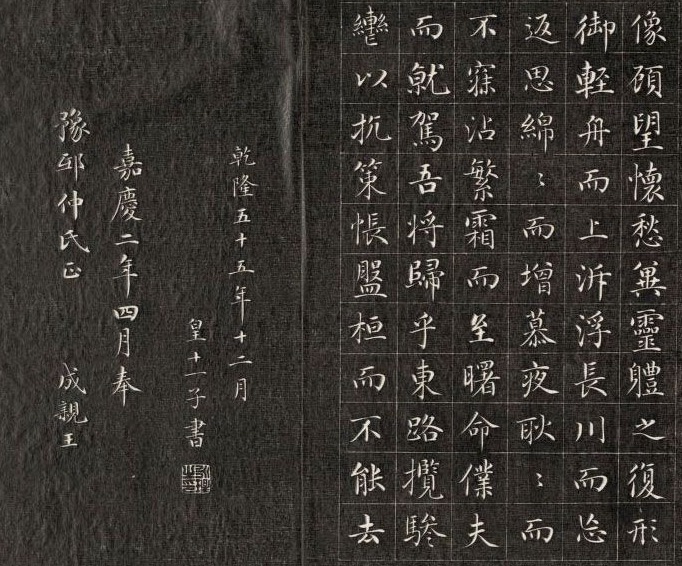 像頋望懷愁兾靈軆之復形
御輕舟而上泝浮長川而忘
返思綿〻而增慕夜耿〻而
不寐沾繁霜而至曙命僕夫
而就駕吾將歸乎東路攬驂
轡以抗策悵盤桓而不能去
乾隆五十五年十二月
皇十一子書
嘉慶二年四月奉
豫邨仲氏正 成親王